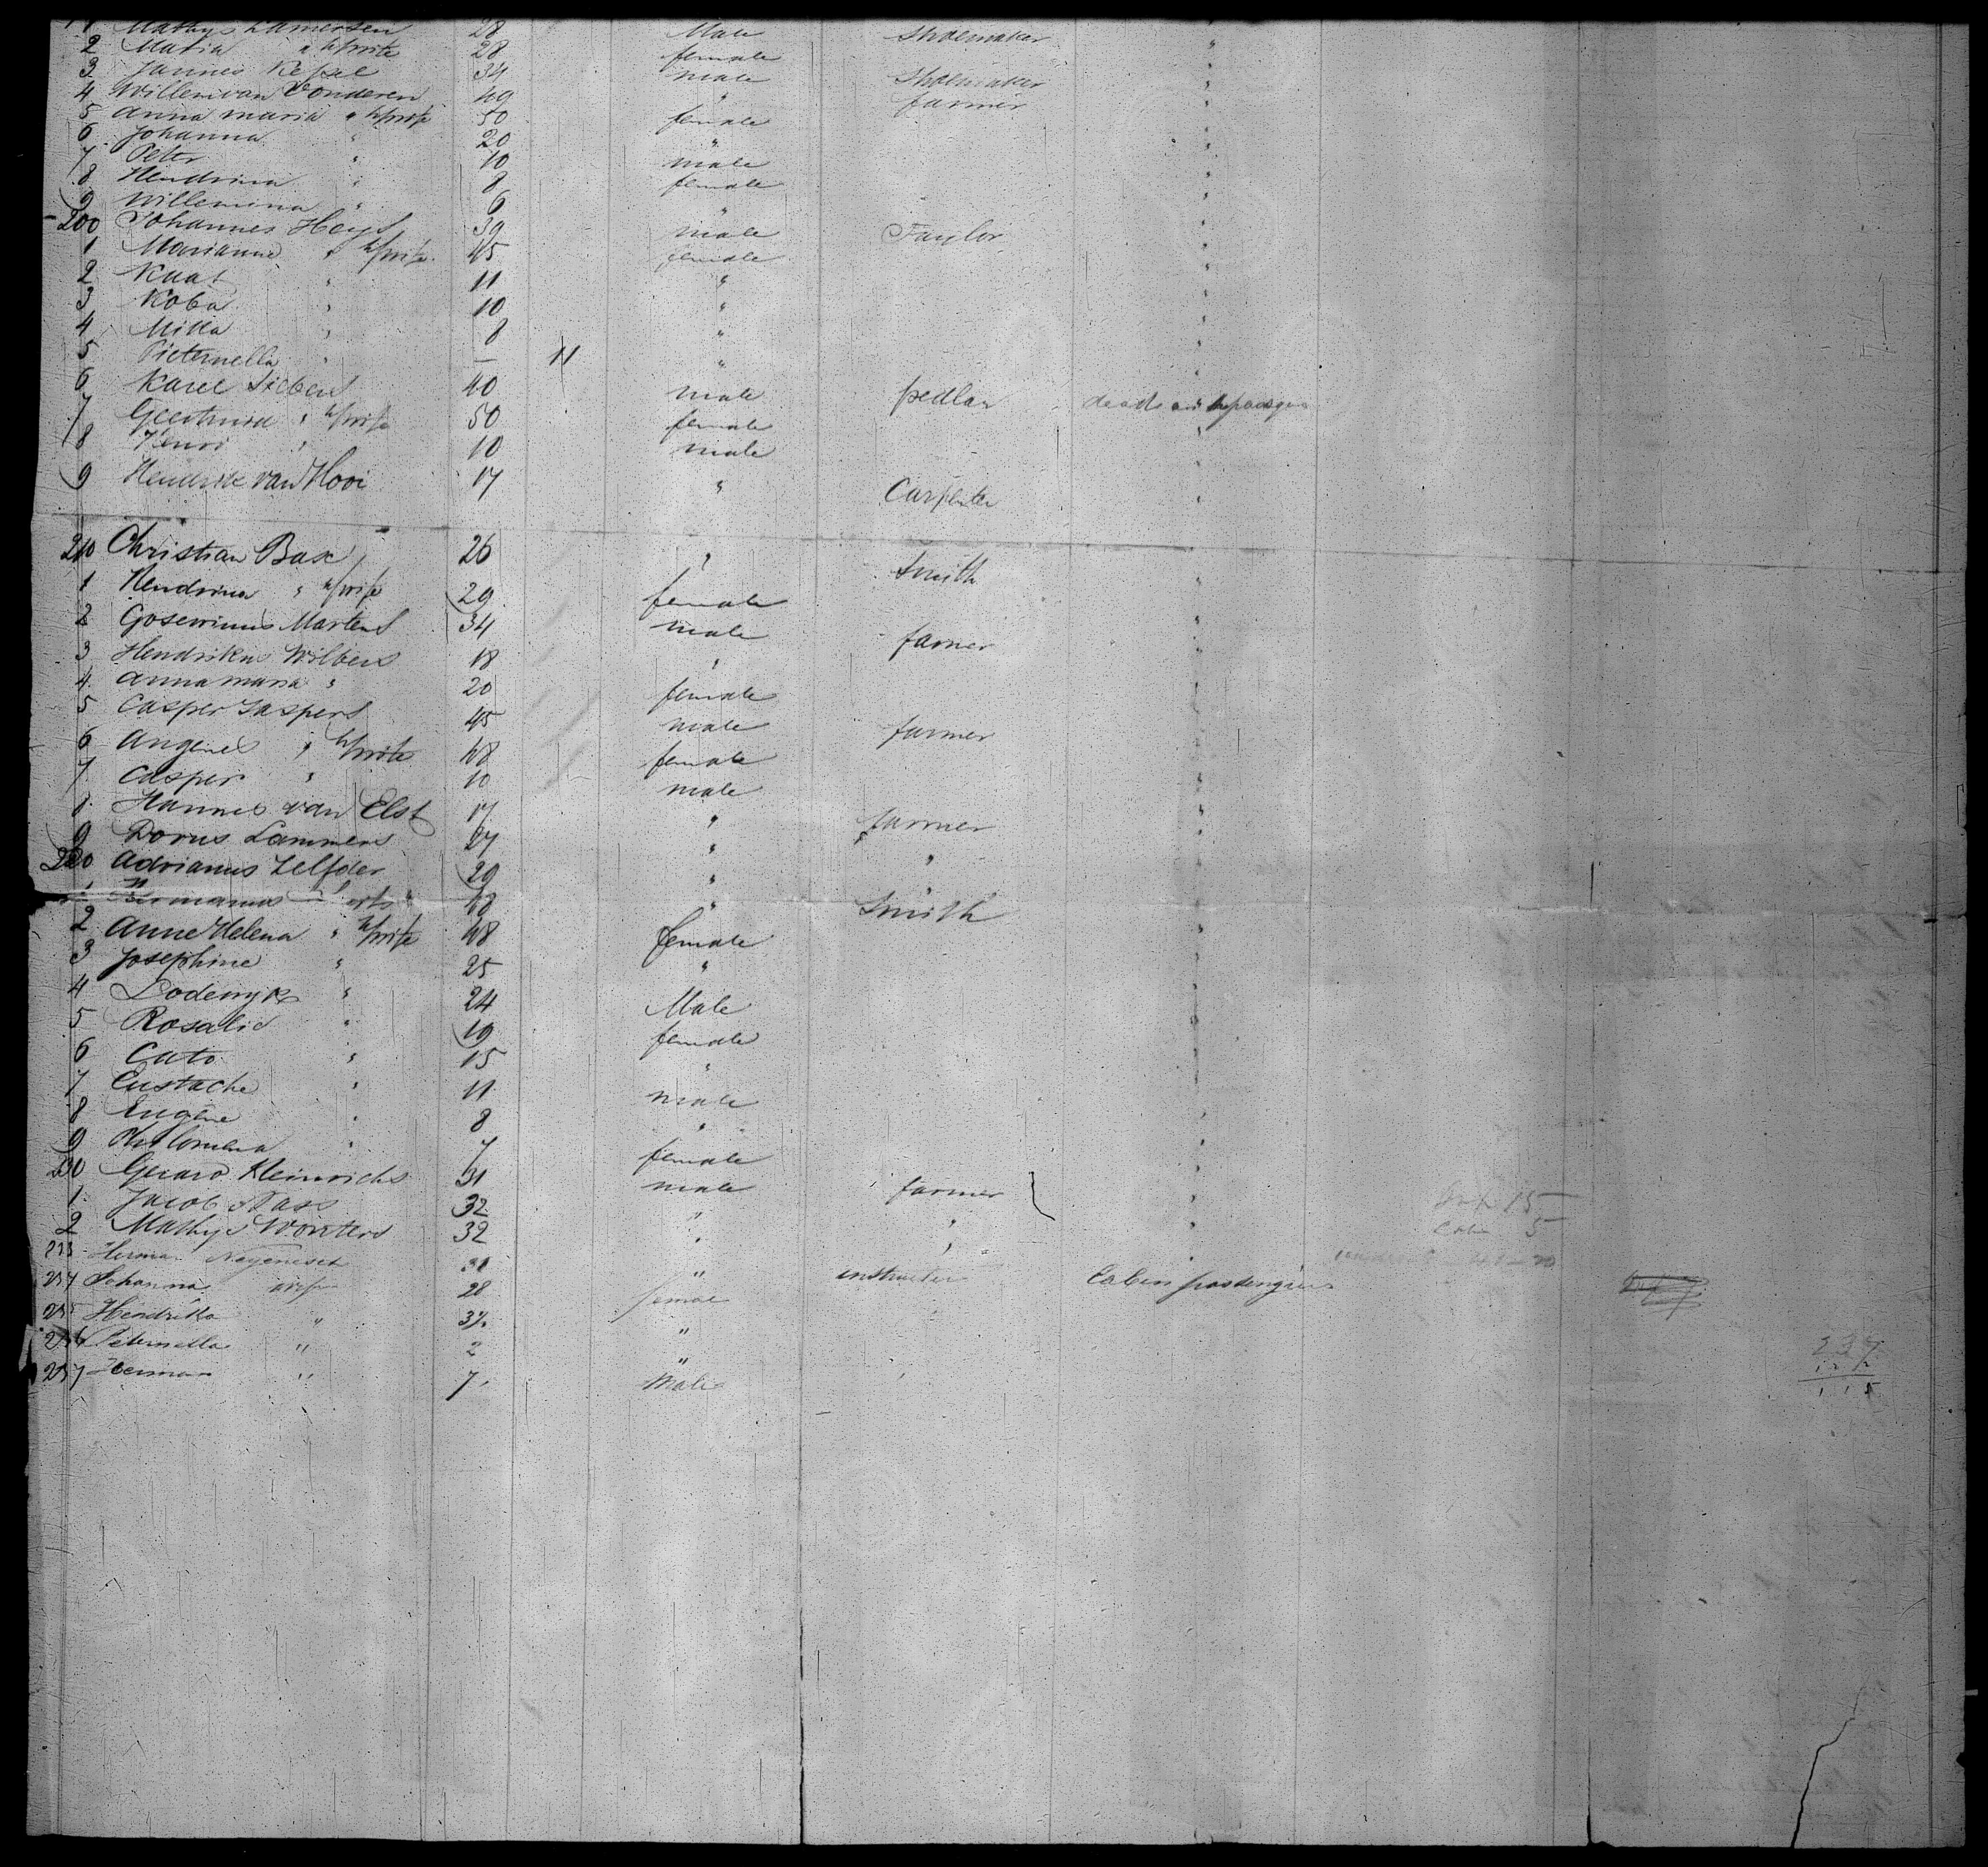 1 Mathys Lamersen 28 Male Shoemaker "
2 Maria " h/wife 28 female "
3 Jannes Kessel 34 male Shoemaker "
4 Willem van Vonderen 49 " farmer "
5 Anna Maria " h/wife 50 female "
6 Johanna " 20 " "
7 Peter " 10 male "
8 Hendrina " 8 female "
9 Willemina " 6 " "
200 Johannes Heys 39 male Taylor "
1 Marianne " h/wife 45 female "
2 Kaat " 11 " "
3 Koba " 10 " "
4 Mikka " 8 " "
5 Pieternella " — 11 " "
6 Karel Siebers 40 male pedlar dead on the passage
7 Geertruida " h/wife 50 female "
8 Henri " 10 male "
9 Hendrik van Hooi 17 " Carpenter "
210 Christian Bax 26 " Smith "
1 Hendrina " h/wife 29 female "
2 Gosewinus Martens 34 male farmer "
3 Hendrikus Wilbers 18 " "
4 Anna maria " 20 female "
5 Casper Jaspers 45 male farmer "
6 Angenes " h/wife 48 female "
7 Casper " 10 male "
8 Hannes van Elst 17 " farmer "
9 Dorus Lammers 27 " " "
220 Adrianus Zelfder 29 " " "
1 Hermanus 48 " Smith "
2 Anne Helena " h/wife 48 female "
3 Josephine " 25 " "
4 Lodewyk " 24 Male "
5 Rosalie " 19 female "
6 Cato " 15 " "
7 Eustache " 11 male "
8 Eugene " 8 " "
9 Philomena " 7 female "
230 Gerard Heinrichs 31 male farmer "
1 Jacob Stass 32 " " "
2 Mathys Wouters 32 " " "
233 Herman 31 " instructer Cabin passengers
234 Johanna wife 28 female
235 Hendrika " 3/. "
236 Peternella " 2 "
237 Herman " 7. Male
15
Cabin 5
237
122
115